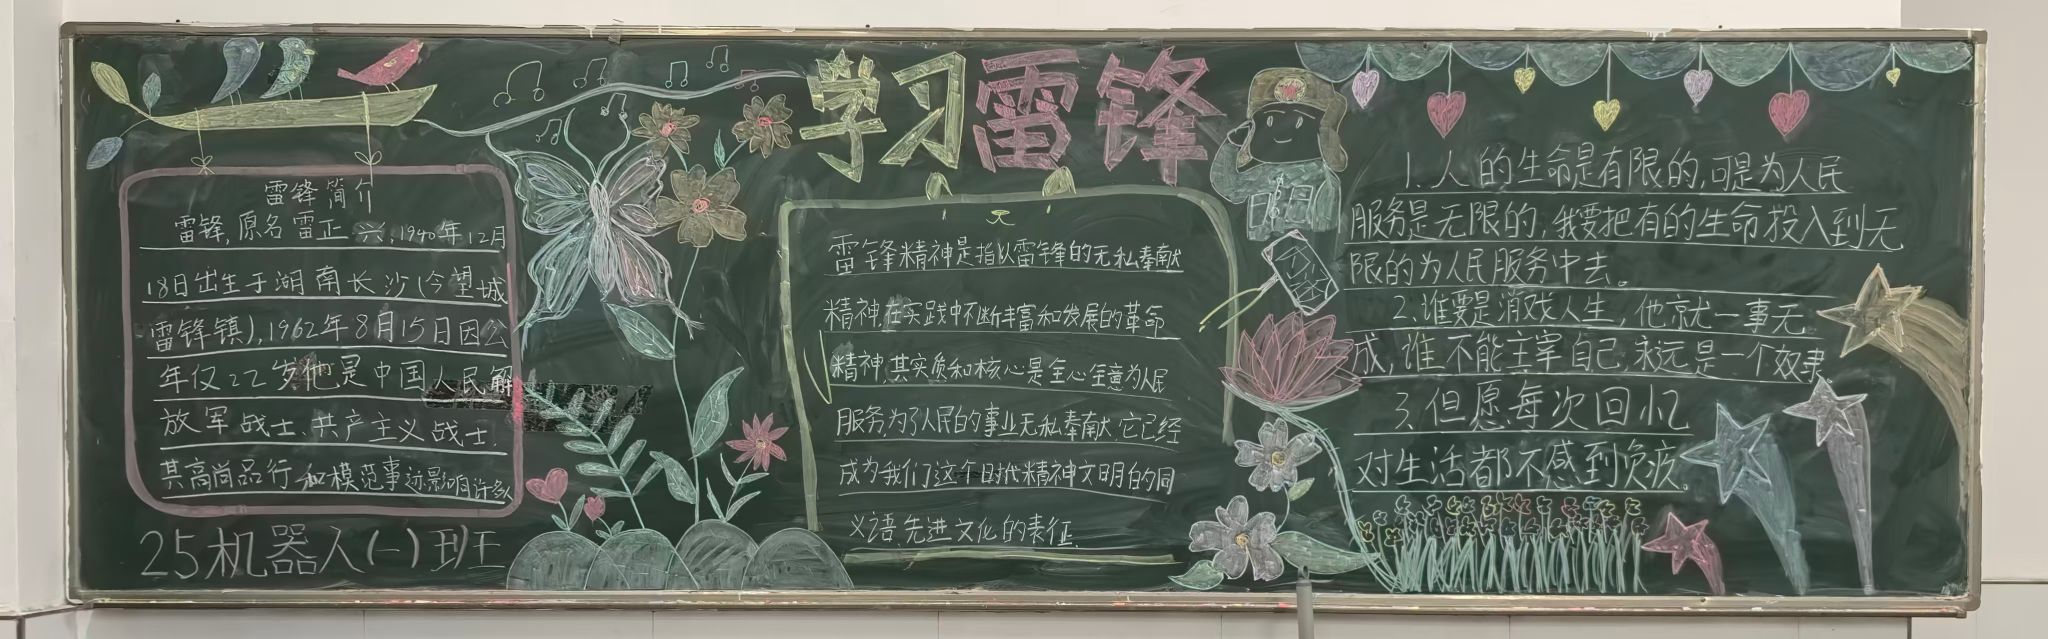 学习雷锋
雷锋简介
雷锋,原名雷正兴,1940年12月
18日出生于湖南长沙(今望城
雷锋镇),1962年8月15日因公
年仅22岁他是中国人民解
放军战士、共产主义战士,
其高尚品行和模范事迹影响许多人
25机器人(一)班
雷锋精神是指以雷锋的无私奉献
精神,在实践中不断丰富和发展的革命
精神,其实质和核心是全心全意为人民
服务,为了人民的事业无私奉献,它已经
成为我们这个时代精神文明的同
义语,先进文化的表征.
1.人的生命是有限的,可是为人民
服务是无限的,我要把有的生命投入到无
限的为人民服务中去。
2.谁要是消戏人生,他就一事无
成,谁不能主宰自己,永远是一个奴隶
3.但愿每次回忆
对生活都不感到负疚.